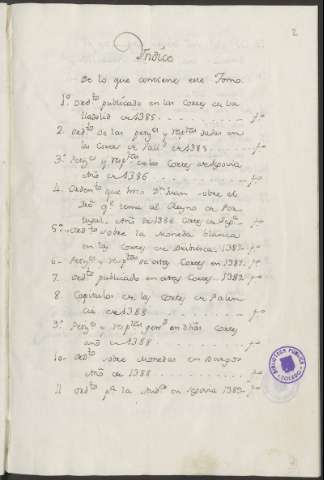 2
Indice
De lo que contiene este Tomo.
1º Ordto publicado en las Cortes de Va
lladolid de 1385. . . . . . . . . . . fº
2. Ordto de las petges y resptas dadas en
las Cortes de Valld de 1385 . . . . fº
3º Petges y resptas en las Cortes de Segovia
Año de 1386 . . . . . . . . fº
4. Ordento que hizo Dn Juan sobre el
dro qe tenia al Reyno de Por
tugal. Año de 1386 Cortes de Segª fº
5º Ordto sobre la Moneda blanca
en las Cortes de Bribiesca 1387. fº
6. Petges y resptas de estas Cortes en 1387. fº
7. Ordto publicado en estas Cortes. 1387. fº
8. Capitulos de las Cortes de Palen
cia de 1388 . . . . . . . . . . fº
9º Petges y resptas en dhas Cortes
año de 1388 . . . . . . . . . . fº
10. Ordto sobre Monedas en Burgos
Año de 1388 . . . . . . . . . . fº
11 Ordto pª la Audª en Segovia 1389. fº
BIBLIOTECA PÚBLICA
TOLEDO